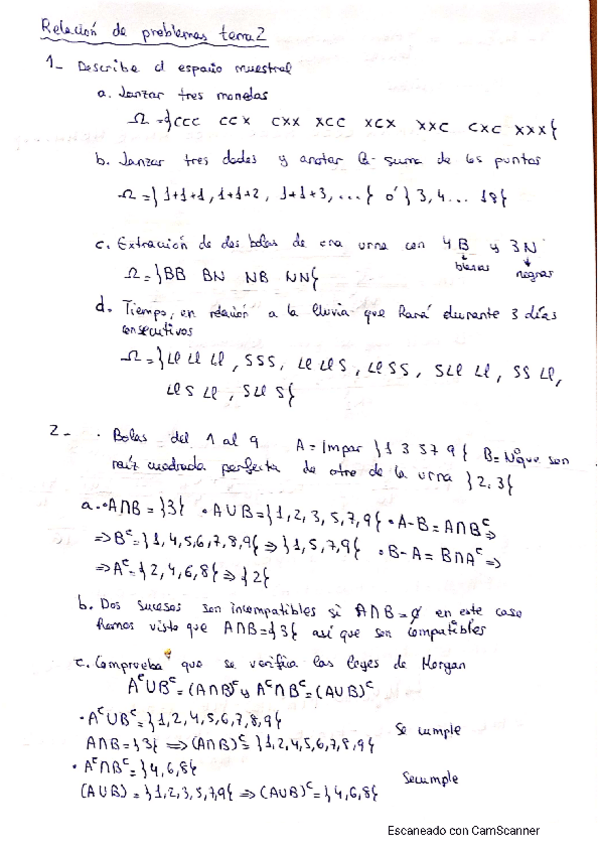 Relación de problemas tema 2
1- Describe el espacio muestral
a. Lanzar tres monedas
Ω = {CCC CCX CXX XCC XCX XXC CXC XXX}
b. Lanzar tres dados y anotar la suma de los puntos
Ω = {1+1+1, 1+1+2, 1+1+3, ...} ó {3, 4... 18}
c. Extracción de dos bolas de una urna con 4B y 3N
blancas negras
Ω = {BB BN NB NN}
d. Tiempo, en relación a la lluvia que hará durante 3 días
consecutivos
Ω = {Ll Ll Ll, SSS, Ll Ll S, Ll SS, S Ll Ll, SS Ll,
Ll S Ll, S Ll S}
2- · Bolas del 1 al 9 A = Impar {1 3 5 7 9} B = Nº que son
raíz cuadrada perfecta de otro de la urna {2, 3}
a. · A∩B = {3} · A∪B = {1, 2, 3, 5, 7, 9} · A-B = A∩Bᶜ ⇒
⇒ Bᶜ = {1, 4, 5, 6, 7, 8, 9} ⇒ {1, 5, 7, 9} · B-A = B∩Aᶜ ⇒
⇒ Aᶜ = {2, 4, 6, 8} ⇒ {2}
b. Dos sucesos son incompatibles si A∩B = ∅ en este caso
hemos visto que A∩B = {3} así que son compatibles
c. Comprueba que se verifica las leyes de Morgan
Aᶜ∪Bᶜ = (A∩B)ᶜ y Aᶜ∩Bᶜ = (A∪B)ᶜ
· Aᶜ∪Bᶜ = {1, 2, 4, 5, 6, 7, 8, 9}
Se cumple
A∩B = {3} ⇒ (A∩B)ᶜ = {1, 2, 4, 5, 6, 7, 8, 9}
· Aᶜ∩Bᶜ = {4, 6, 8}
Se cumple
(A∪B) = {1, 2, 3, 5, 7, 9} ⇒ (A∪B)ᶜ = {4, 6, 8}
Escaneado con CamScanner